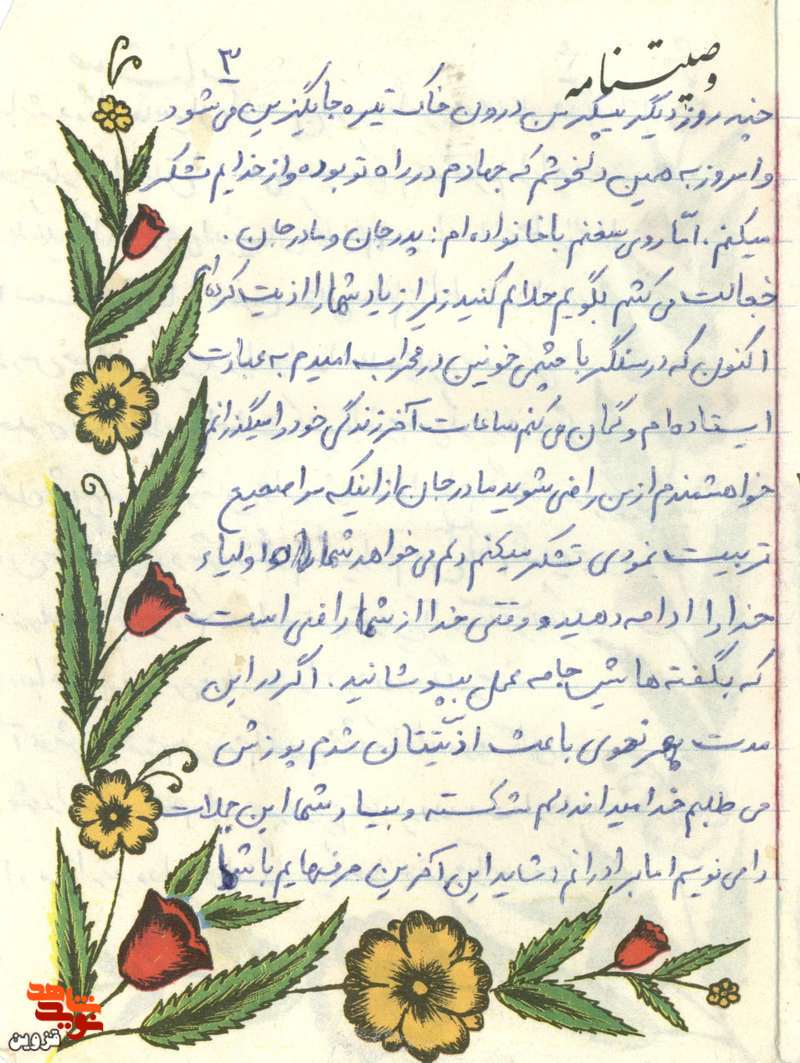 وصیتنامه
۳
چند روز دیگر پیکرمن درون خاک تیره جایگزین می شود
و امروز به همین دلخوشم که جهادم در راه تو بوده و از خدایم تشکر
میکنم . امّا روی سخنم با خانواده ام : پدر جان و مادر جان .
خجالت می کشم بگویم حلالم کنید زیرا زیاد شما را اذیت کرده ام
اکنون که در سنگر با چشمی خونین در محراب امیدم به عبارت
ایستاده ام و گمان می کنم ساعات آخر زندگی خود را میگذرانم
خواهشمندم از من راضی شوید مادر جان از اینکه مرا صحیح
تربیت نمودی تشکر میکنم دلم می خواهد شما راه اولیاء
خدا را ادامه دهید و وقتی خدا از شما راضی است
که بگفته هایش جامه عمل بپوشانید . اگر در این
مدت بهر نحوی باعث اذیّتتان شدم پوزش
می طلبم خدا میداند دلم شکسته و بیاد شما این جملات
را می نویسم اما برادرانم : شاید این آخرین حرفهایم با شما
نوید شاهد
قزوین